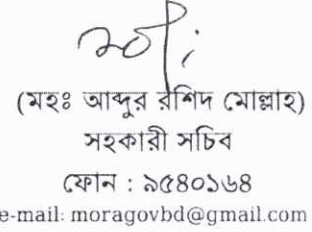 (মহঃ আব্দুর রশিদ মোল্লাহ)
সহকারী সচিব
ফোন : ৯৫৪০১৬৪
e-mail: moragovbd@gmail.com